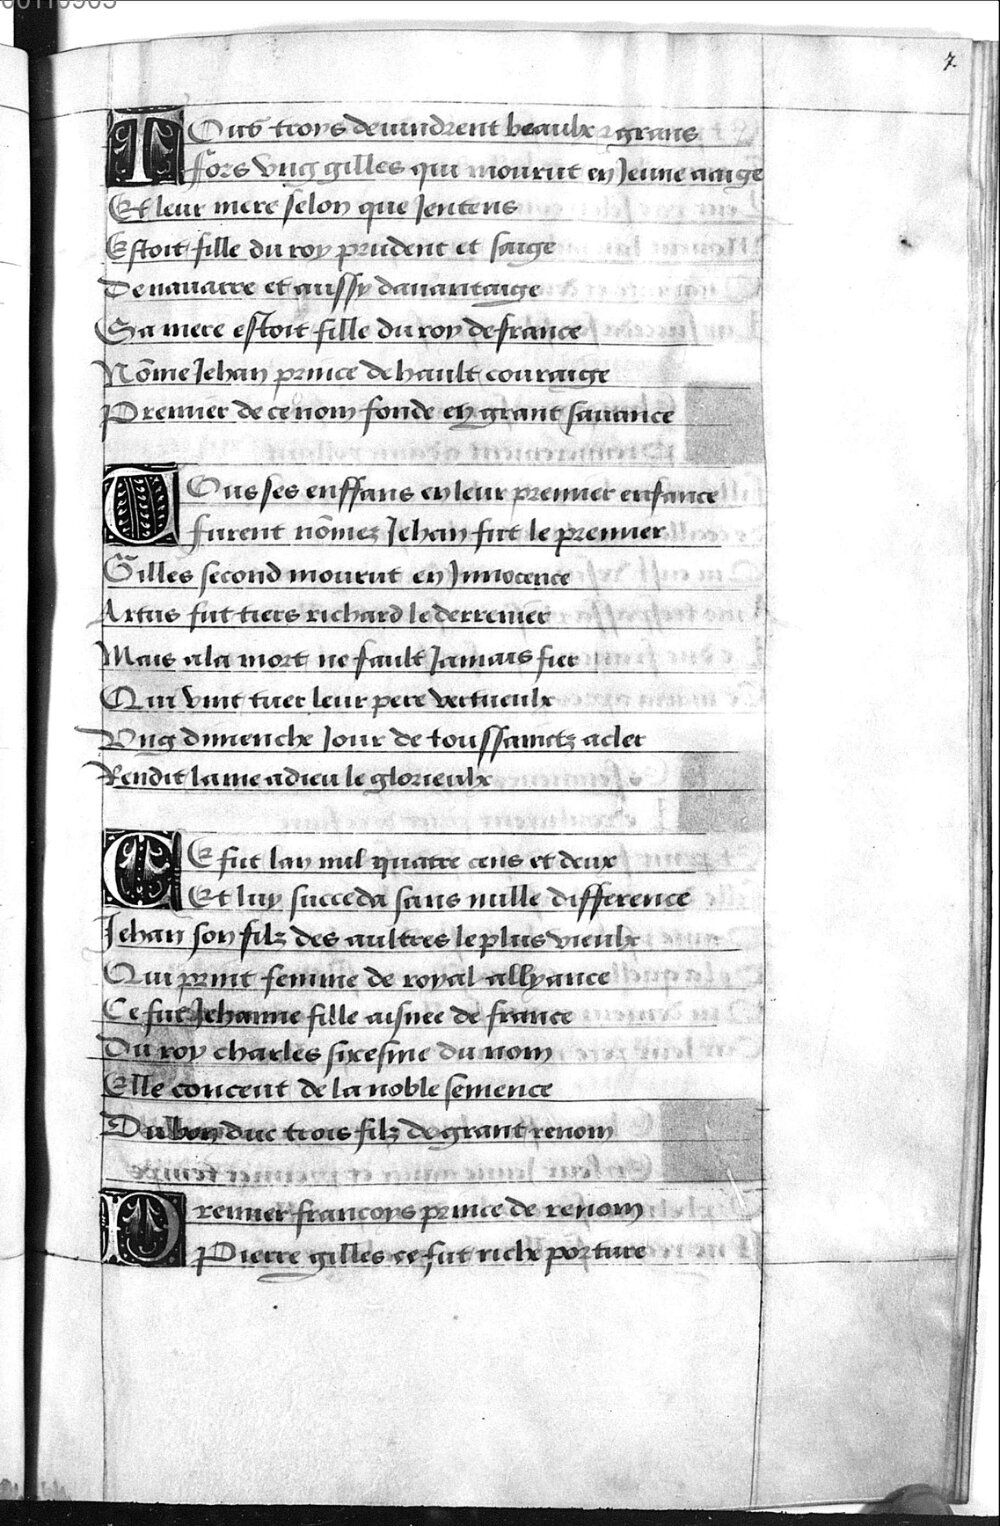 7
TOus troys devindrent beaulx & grans
fors ung gilles qui mourut en Jeune aaige
Et leur mere selon que Jentens
Estoit fille du roy prudent et saige
De navarre et aussy davantaige
Sa mere estoit fille du roy de france
Nõme Jehan prince de hault couraige
Premier de ce nom fonde en grant savance
TOus ses enffans en leur premier enfance
furent nõmez Jehan fut le premier
Gilles second mourut en Innocence
Artus fut tiers richard le derrenier
Mais a la mort ne fault Jamais fier
Qui vint tuer leur pere vertueulx
Ung dimenche Jour de toussainctz a cler
Rendit lame a dieu le glorieulx
CE fut lan mil quatre cens et deux
Et luy succeda sans nulle difference
Jehan son filz des aultres le plus vieulx
Qui print femme de royal allyance
Ce fut Jehanne fille aisnee de france
Du roy charles sixesme du nom
Elle conceut de la noble semence
Du bon duc trois filz de grant renom
Premier francoys prince de renom
Pierre gilles ce fut riche porture